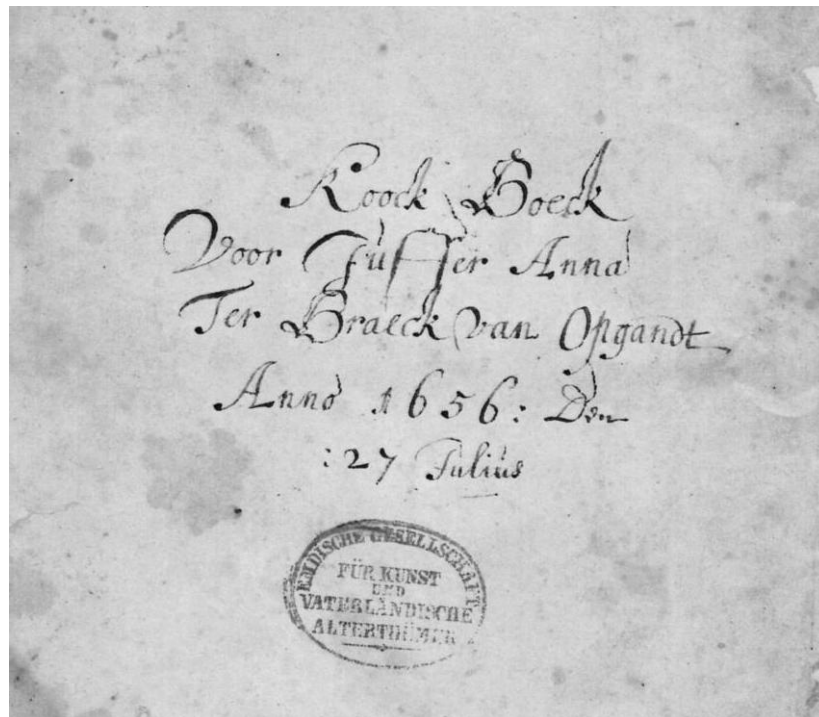 Koock Boeck
Voor Juffer Anna
Ter Braeck van Opgandt
Anno 1656: Den
:27 Julius
EMDISCHE GESELLSCHAFT
FÜR KUNST
UND
VATERLÄNDISCHE
ALTERTHÜMER